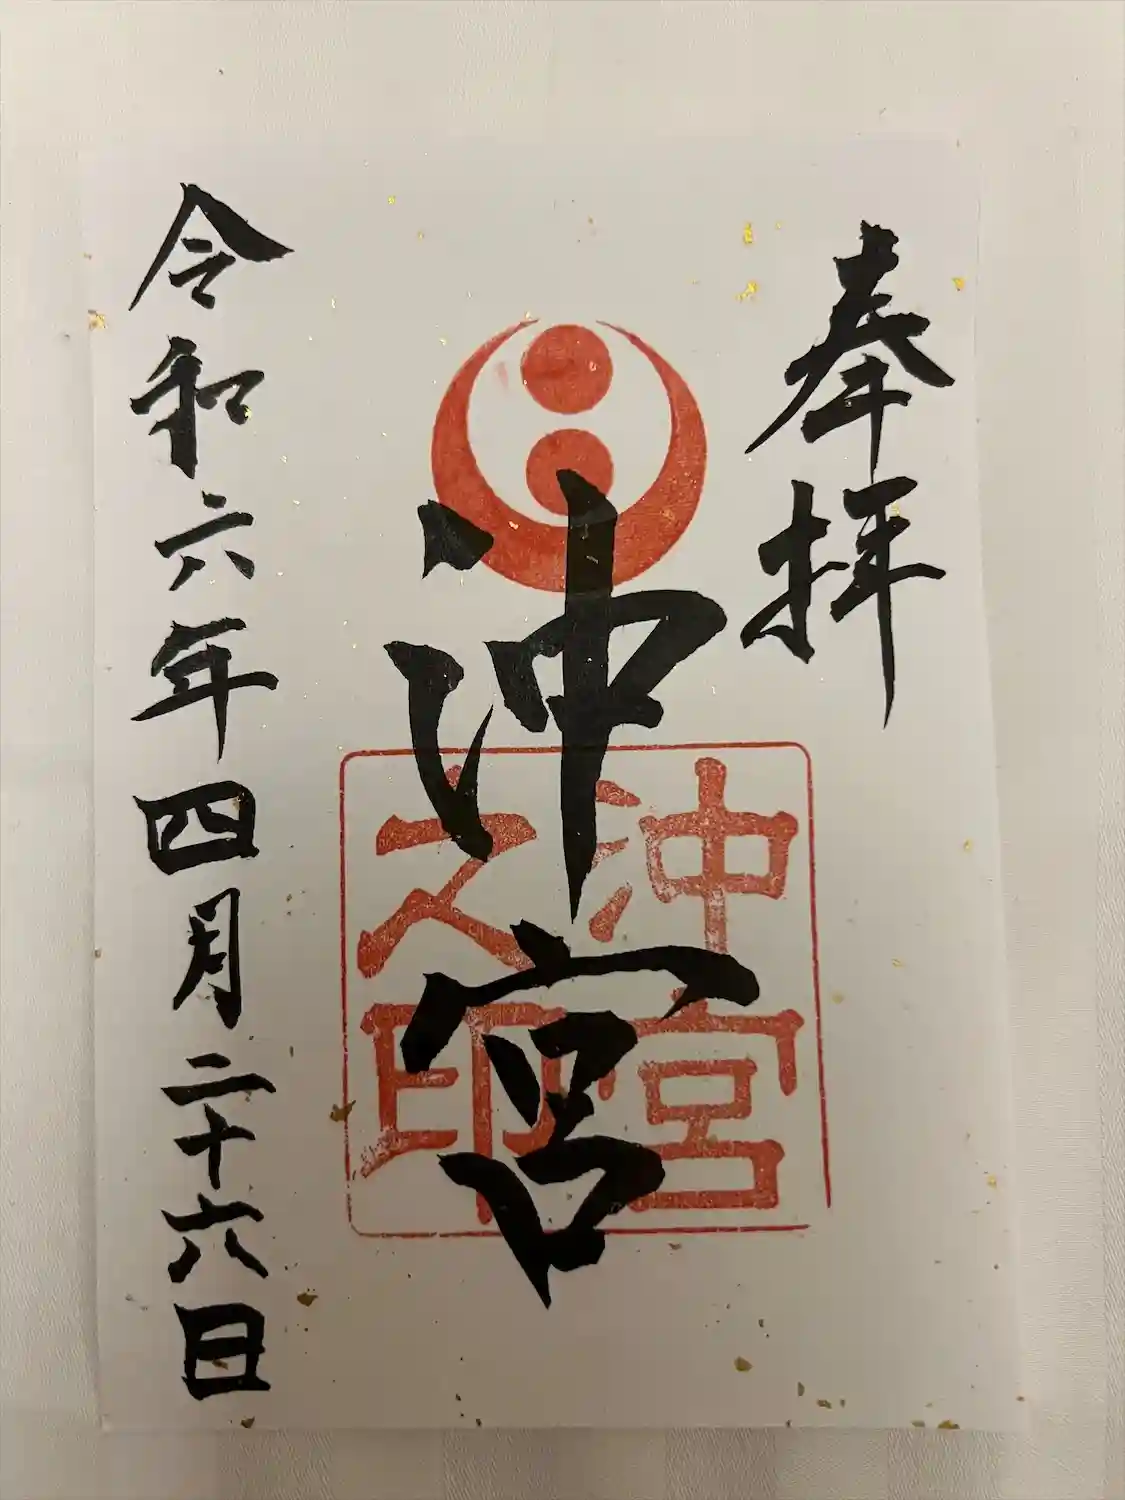 奉拝
沖宮
沖宮
之印
令和六年四月二十六日